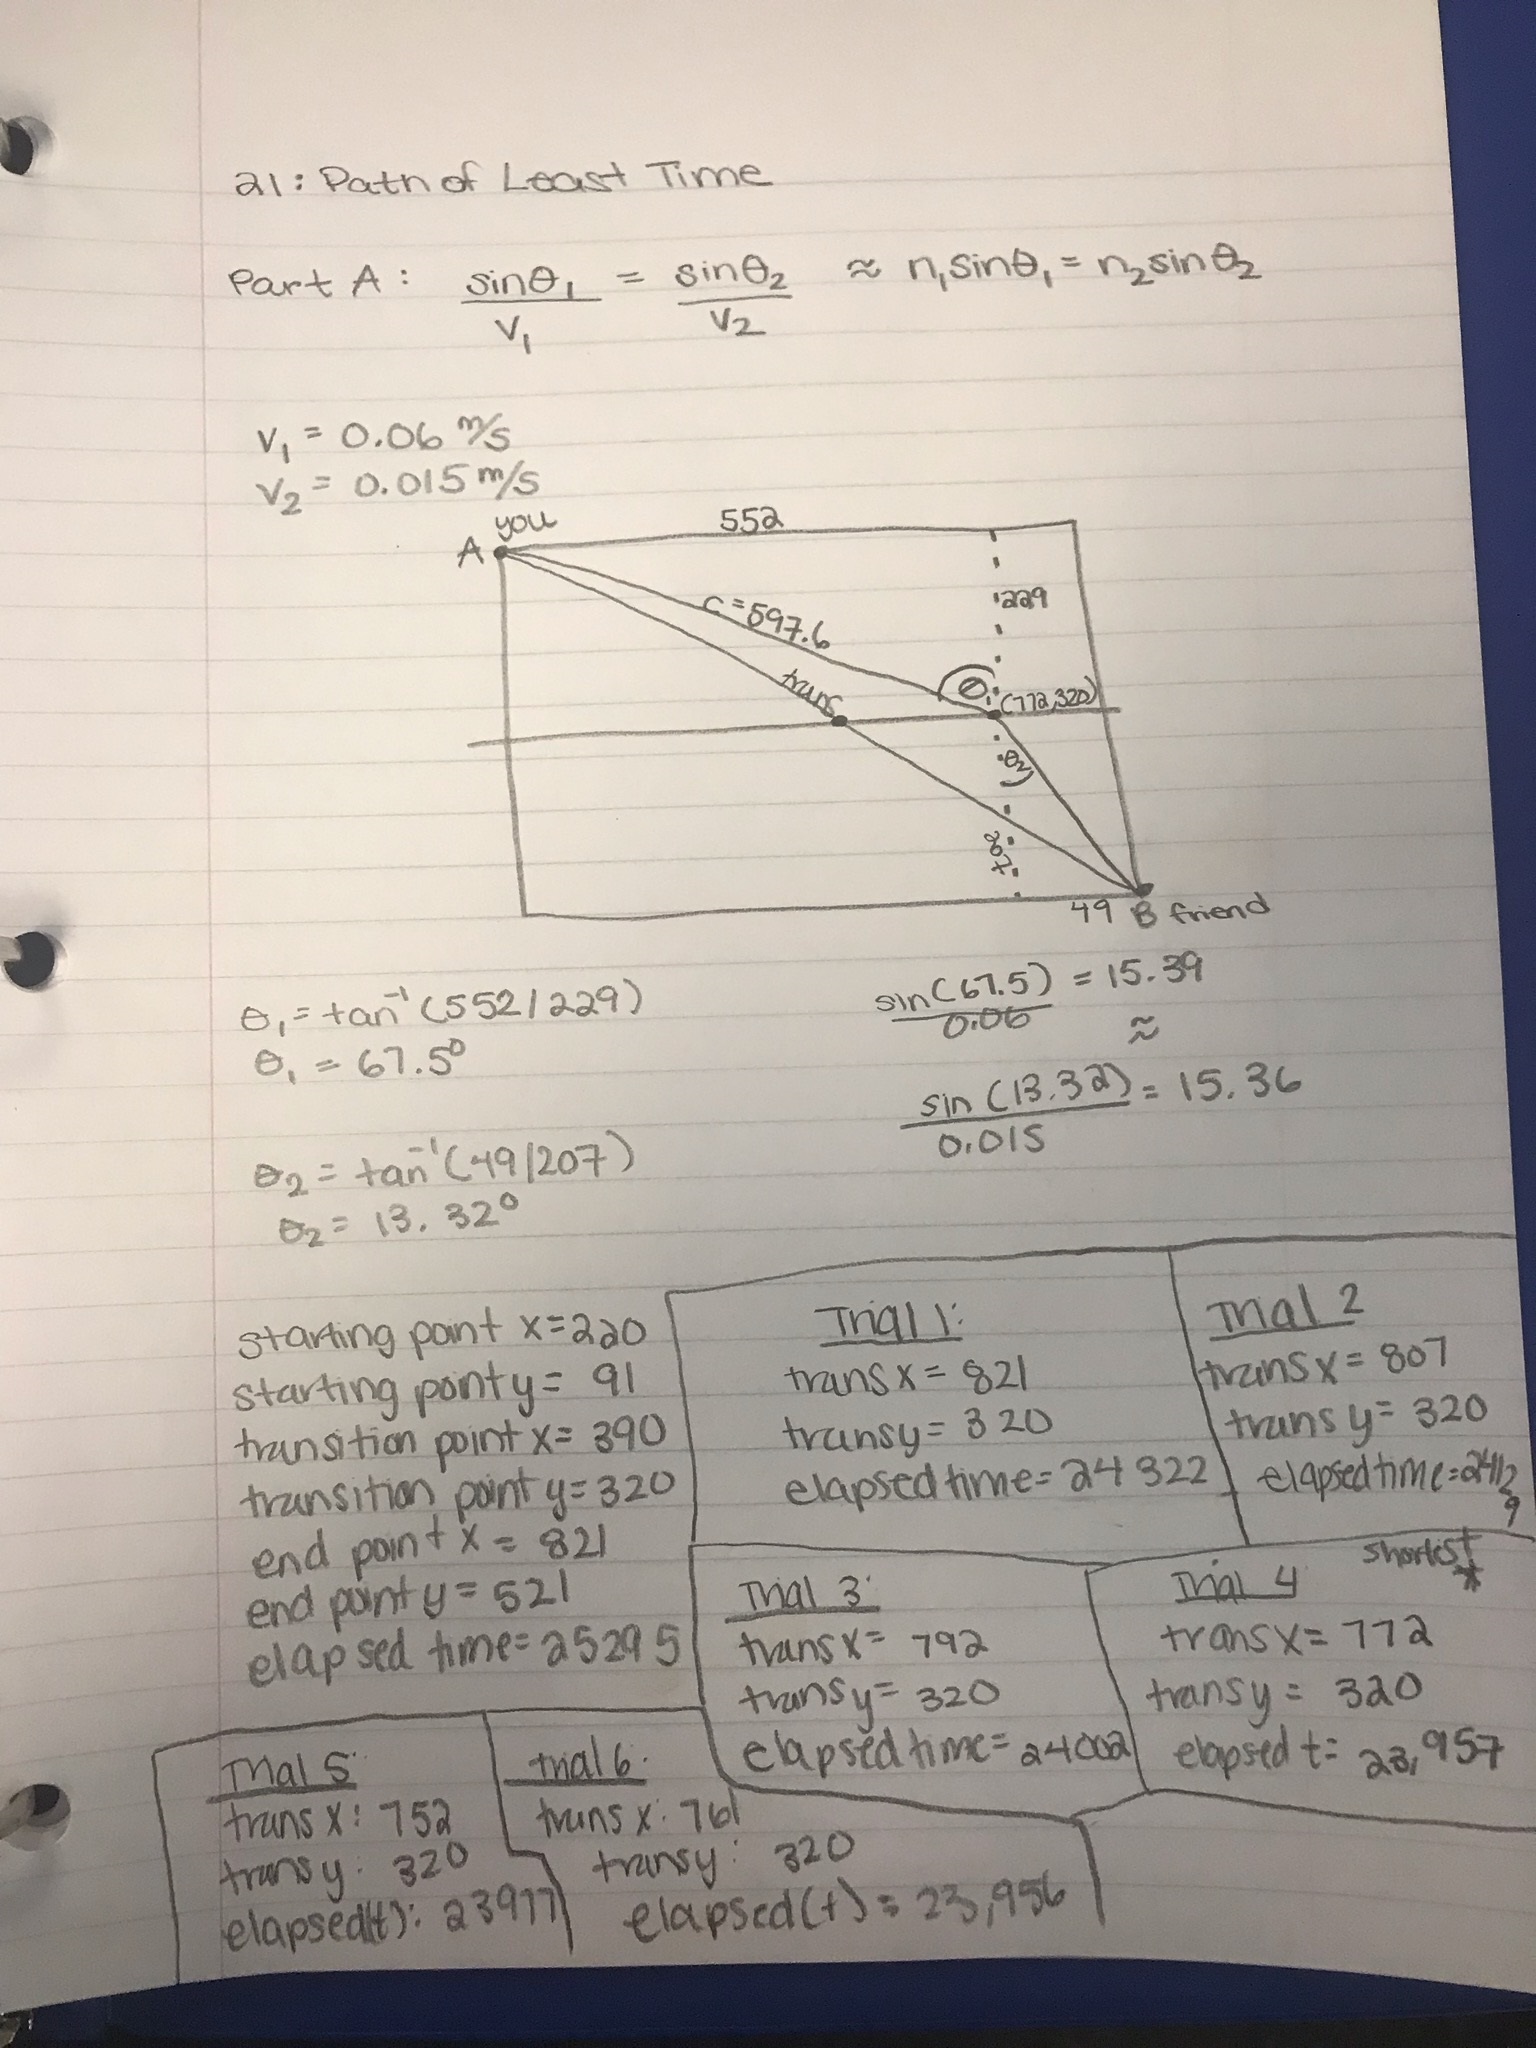 21: Path of Least Time
Part A: sinθ₁/V₁ = sinθ₂/V₂ ≈ n₁sinθ₁ = n₂sinθ₂
V₁ = 0.06 m/s
V₂ = 0.015 m/s
you
A
552
229
c = 597.6
trans
θ₁
(772,320)
θ₂
49 B friend
θ₁ = tan⁻¹(552/229)
θ₁ = 67.5°
sin(67.5)/0.06 = 15.39
≈
sin(13.32)/0.015 = 15.36
θ₂ = tan⁻¹(49/207)
θ₂ = 13.32°
starting point x=220
starting point y= 91
transition point x= 390
transition point y= 320
end point x = 821
end point y = 521
elapsed time= 25295
Trial 1:
trans x = 821
trans y = 320
elapsed time= 24322
Trial 2
trans x = 807
trans y = 320
elapsed time=
Trial 3:
trans x= 792
trans y= 320
elapsed time= 24002
shortest *
Trial 4
trans x= 772
trans y = 320
elapsed t= 23,957
Trial 5:
trans x: 752
trans y: 320
elapsed(t): 23977
trial 6:
trans x: 761
trans y: 320
elapsed(t) = 23,956